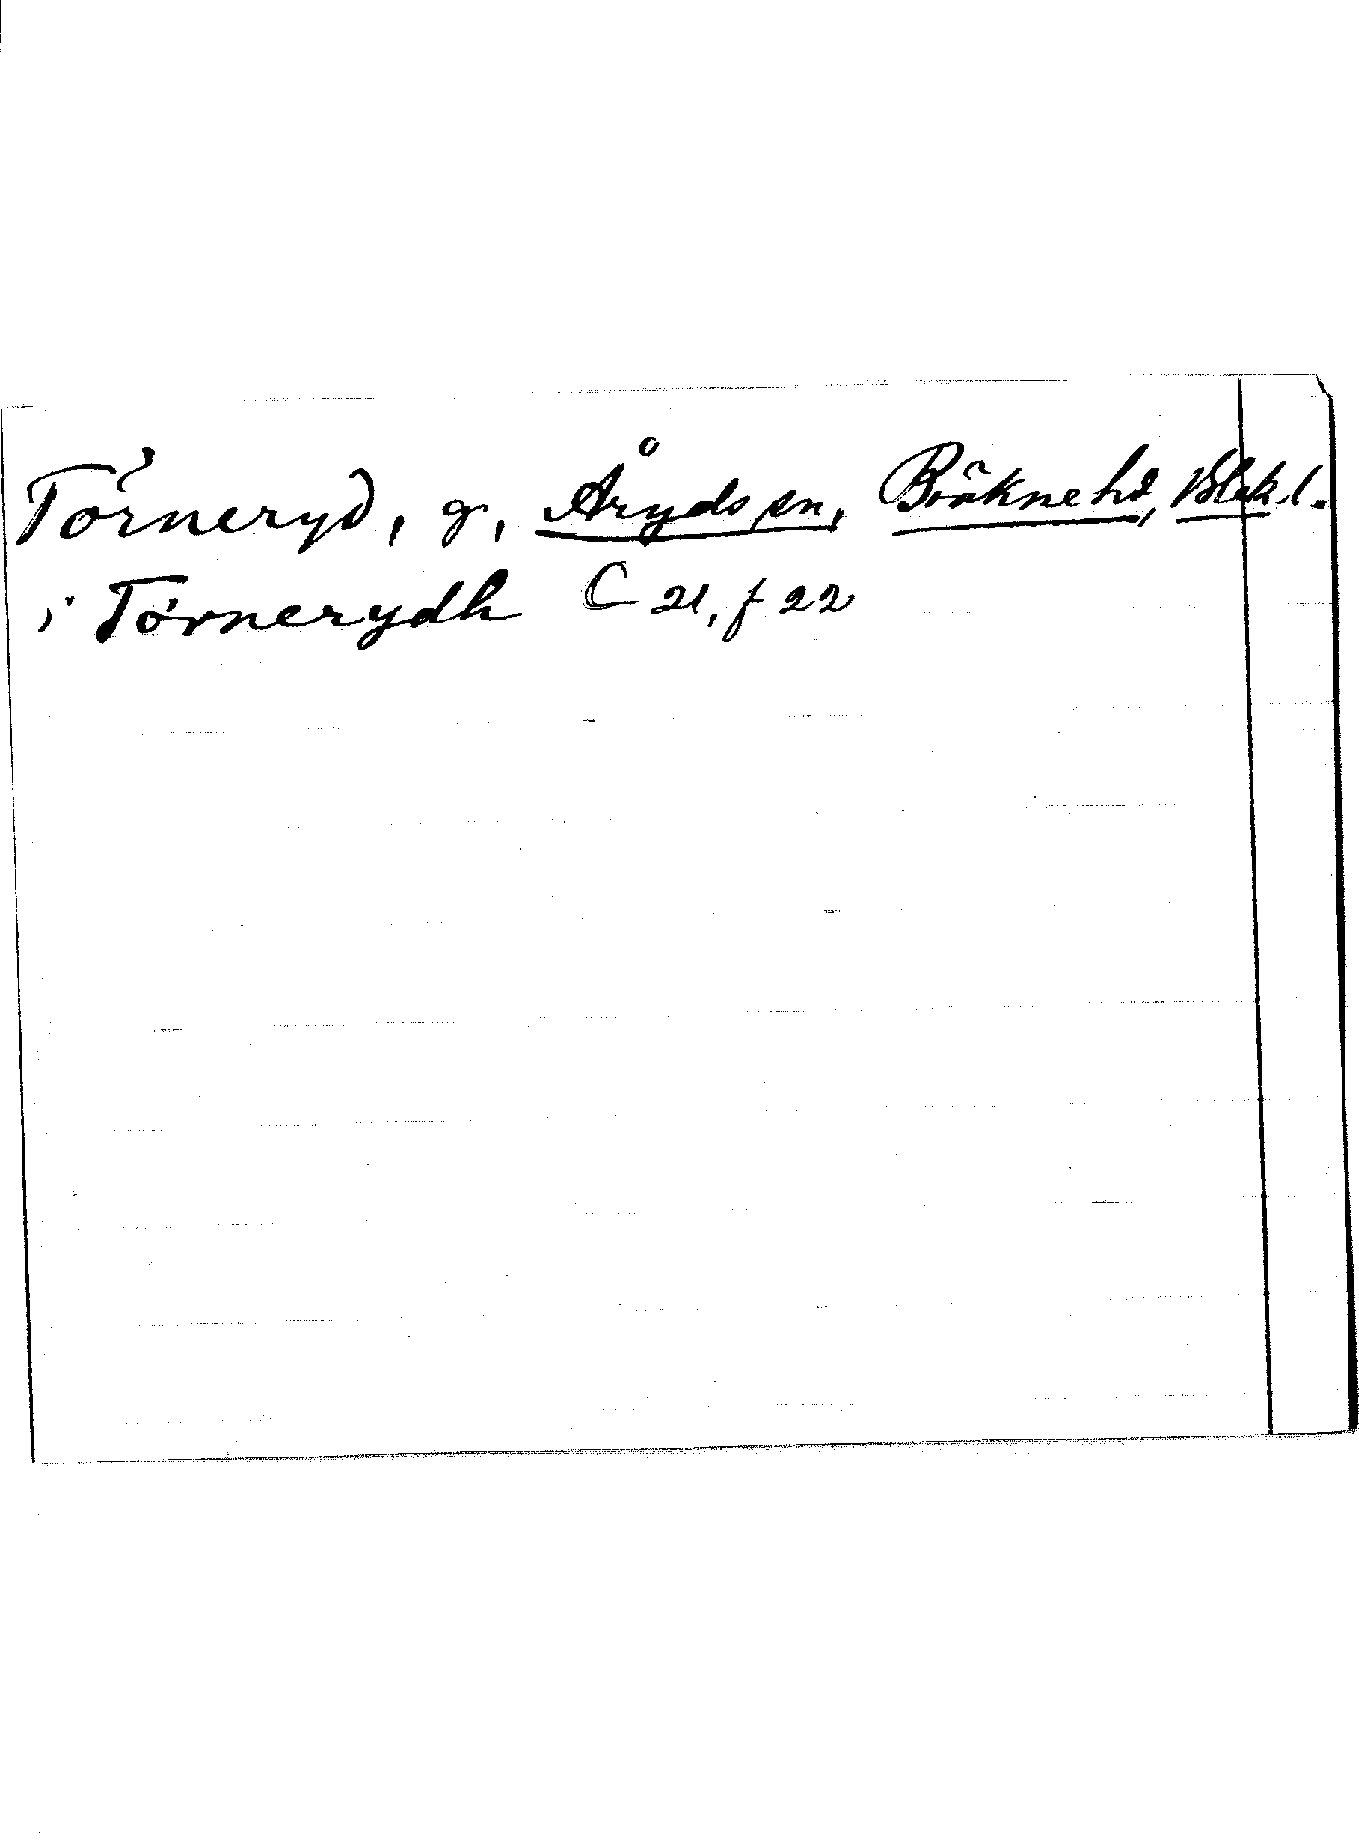 Törneryd, g, Åryds sn, Bräkne hd, Blek. l.
i Törnerydh C 21, f 22